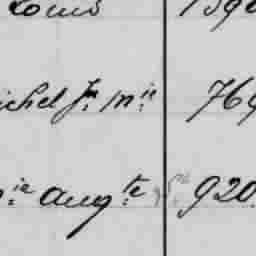 Louis 1390
ichel Jn. Mie 769
ie Augte 920